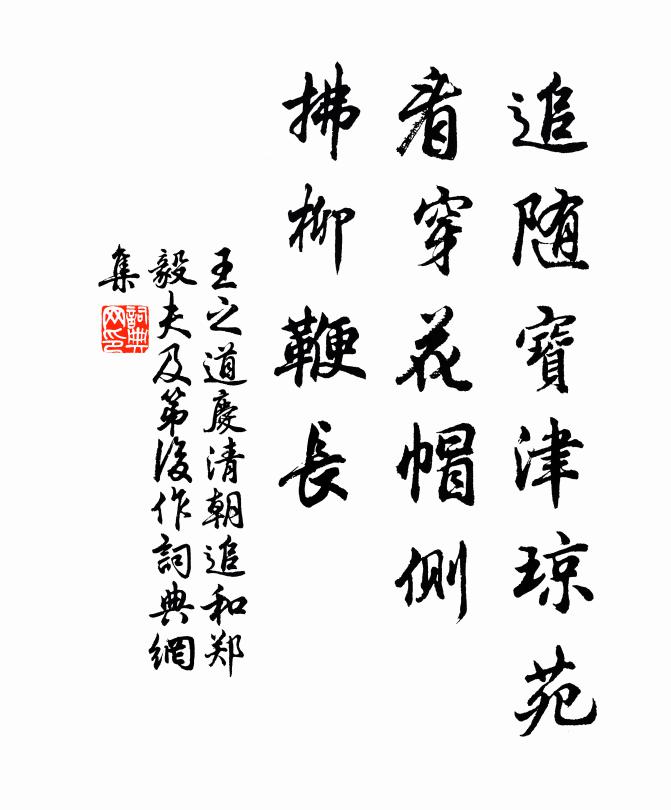 追随寶津琼苑
看穿花帽側
拂柳鞭長
王之道慶清朝追和郑
毅夫及第後作詞典網
集
詞典
网印